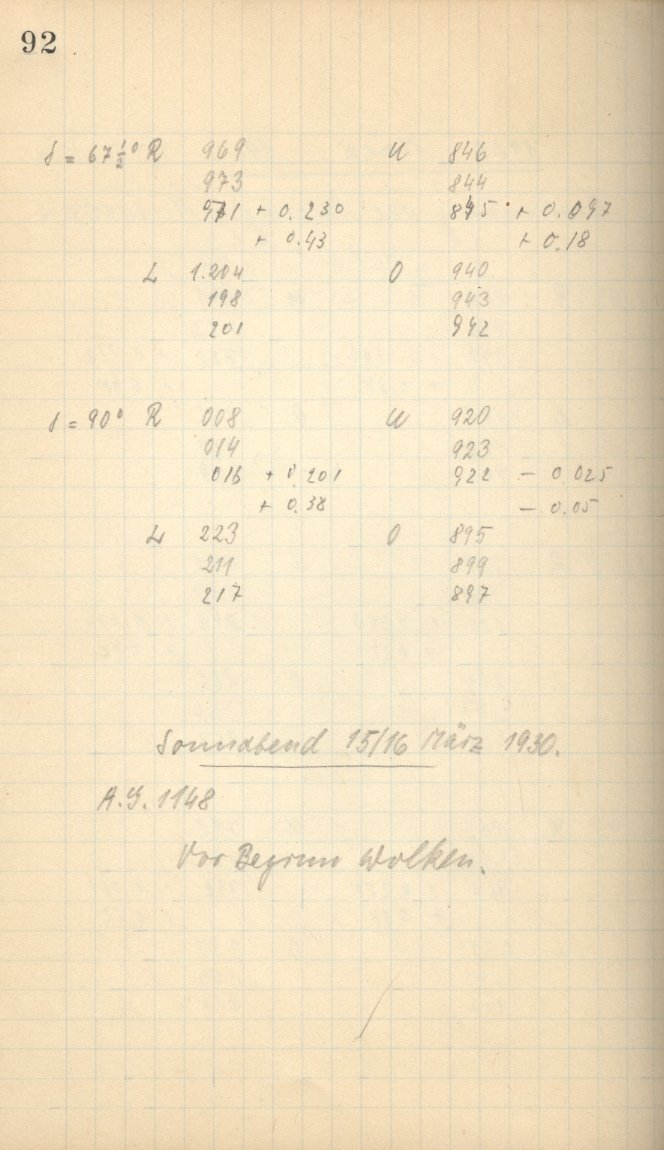 92
δ = 67 ½° R 969 U 846
973 844
971 + 0.230 845 + 0.097
+ 0.43 + 0.18
L 1.204 O 940
198 943
201 942
δ = 90° R 008 U 920
014 923
016 + 0.201 922 - 0.025
+ 0.38 - 0.05
L 223 O 895
211 899
217 897
Sonnabend 15/16 März 1930.
A.G. 1148
Vor Beginn Wolken.